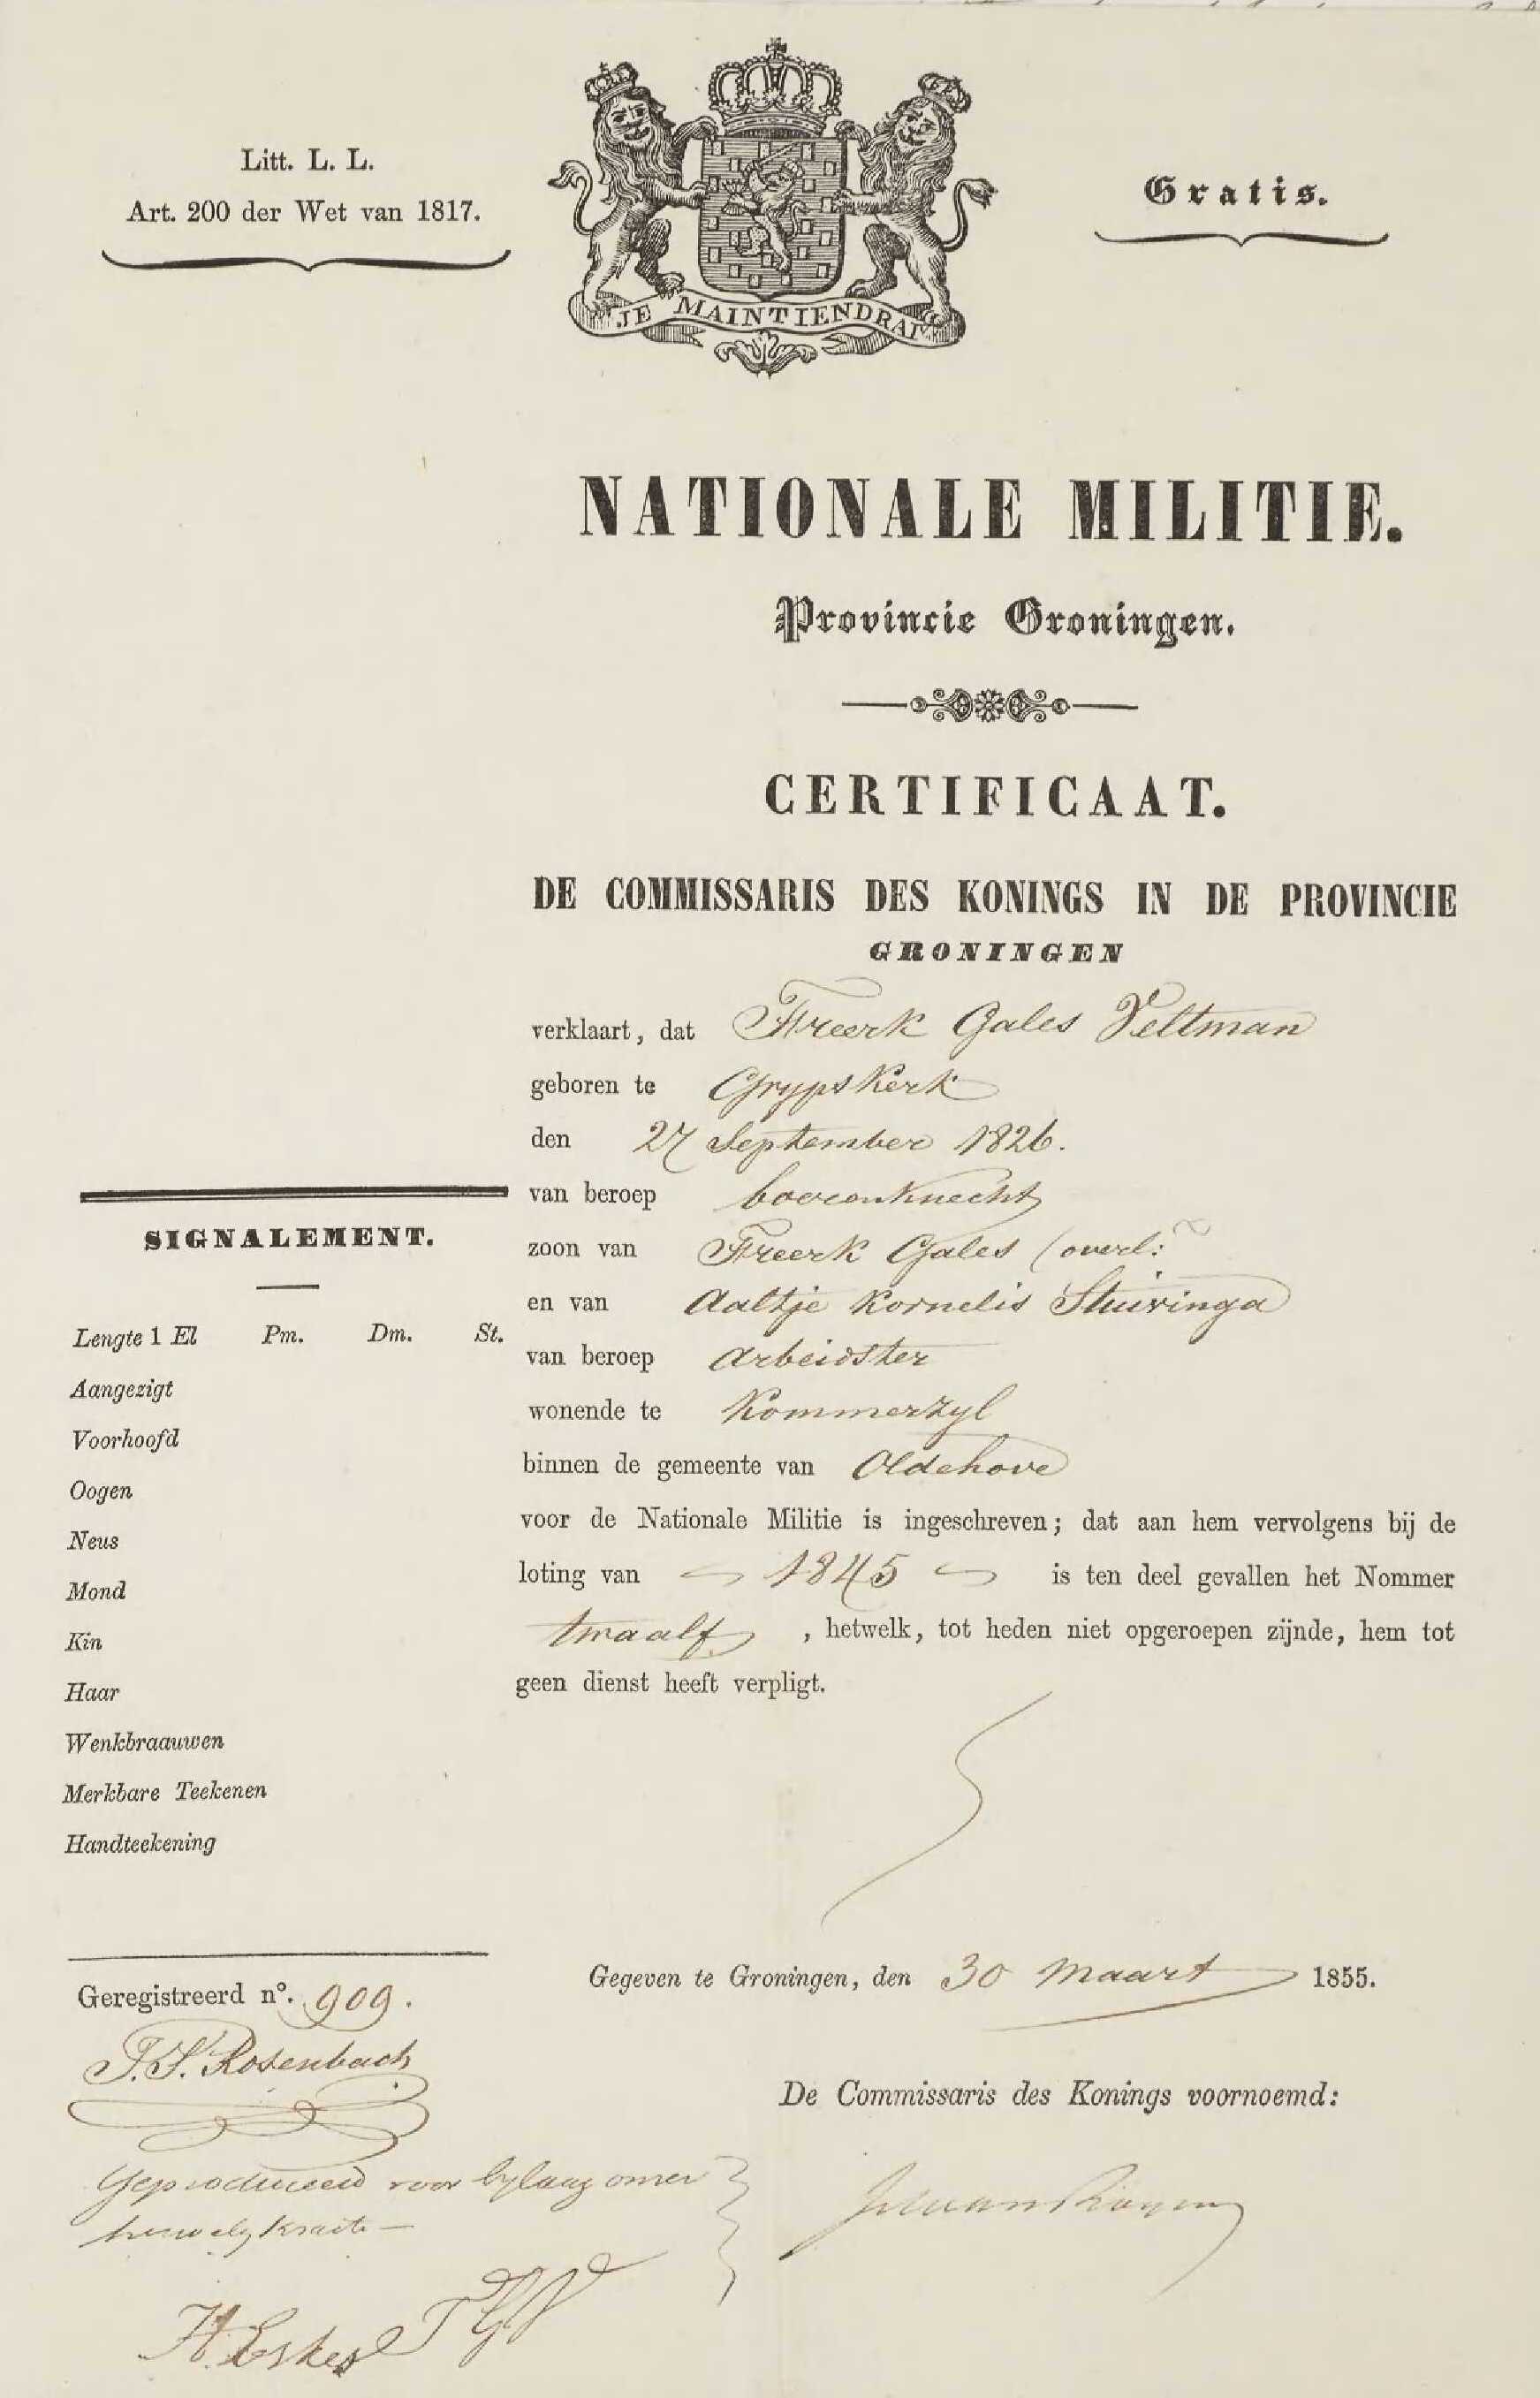 Litt. L. L.
Art. 200 der Wet van 1817.
Gratis.
JE MAINTIENDRAI
NATIONALE MILITIE.
Provincie Groningen.
CERTIFICAAT.
DE COMMISSARIS DES KONINGS IN DE PROVINCIE
GRONINGEN
verklaart, dat Freerk Gales Veltman
geboren te Grypskerk
den 27 September 1826.
van beroep boerenknecht
zoon van Freerk Gales (overl:
en van Aaltje Kornelis Stuivinga
van beroep arbeidster
wonende te Kommerzyl
binnen de gemeente van Oldehove
voor de Nationale Militie is ingeschreven; dat aan hem vervolgens bij de
loting van 1845 is ten deel gevallen het Nommer
twaalf, hetwelk, tot heden niet opgeroepen zijnde, hem tot
geen dienst heeft verpligt.
SIGNALEMENT.
Lengte 1 El Pm. Dm. St.
Aangezigt
Voorhoofd
Oogen
Neus
Mond
Kin
Haar
Wenkbraauwen
Merkbare Teekenen
Handteekening
Gegeven te Groningen, den 30 Maart 1855.
De Commissaris des Konings voornoemd:
Geregistreerd n°. 909.
Rosenbach
Geproduceerd voor bylaag
H. Eskes